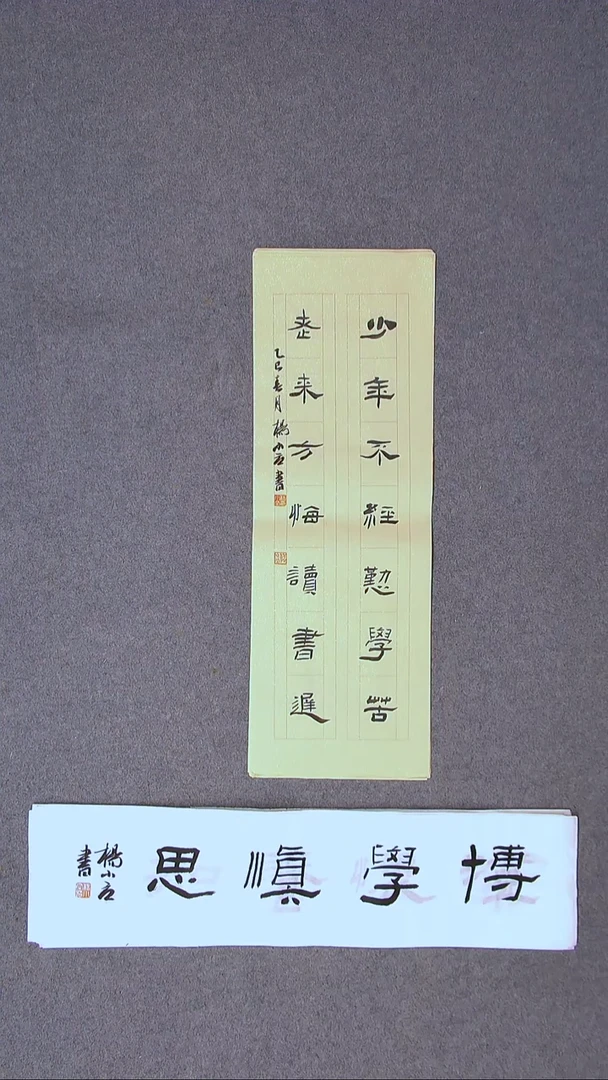 少年不經懃學苦
老来方悔讀書遲
乙巳春月楊小書
博學愼思
楊小
書